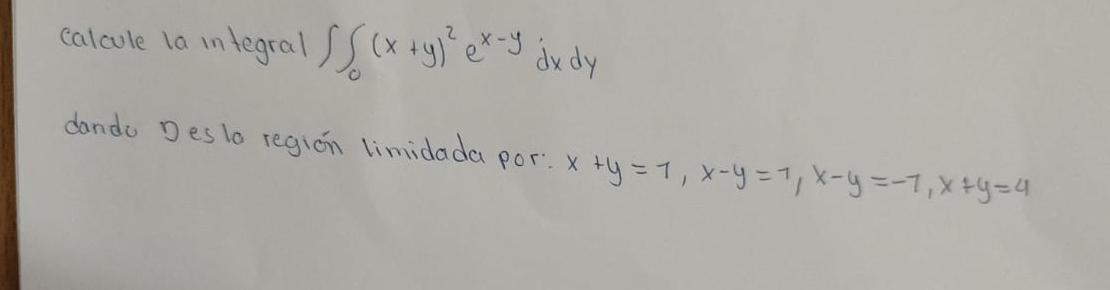 calcule la integral ∫∫₀ (x+y)² e^(x-y) dxdy
dando D es la región limidada por: x+y=1, x-y=1, x-y=-1, x+y=4